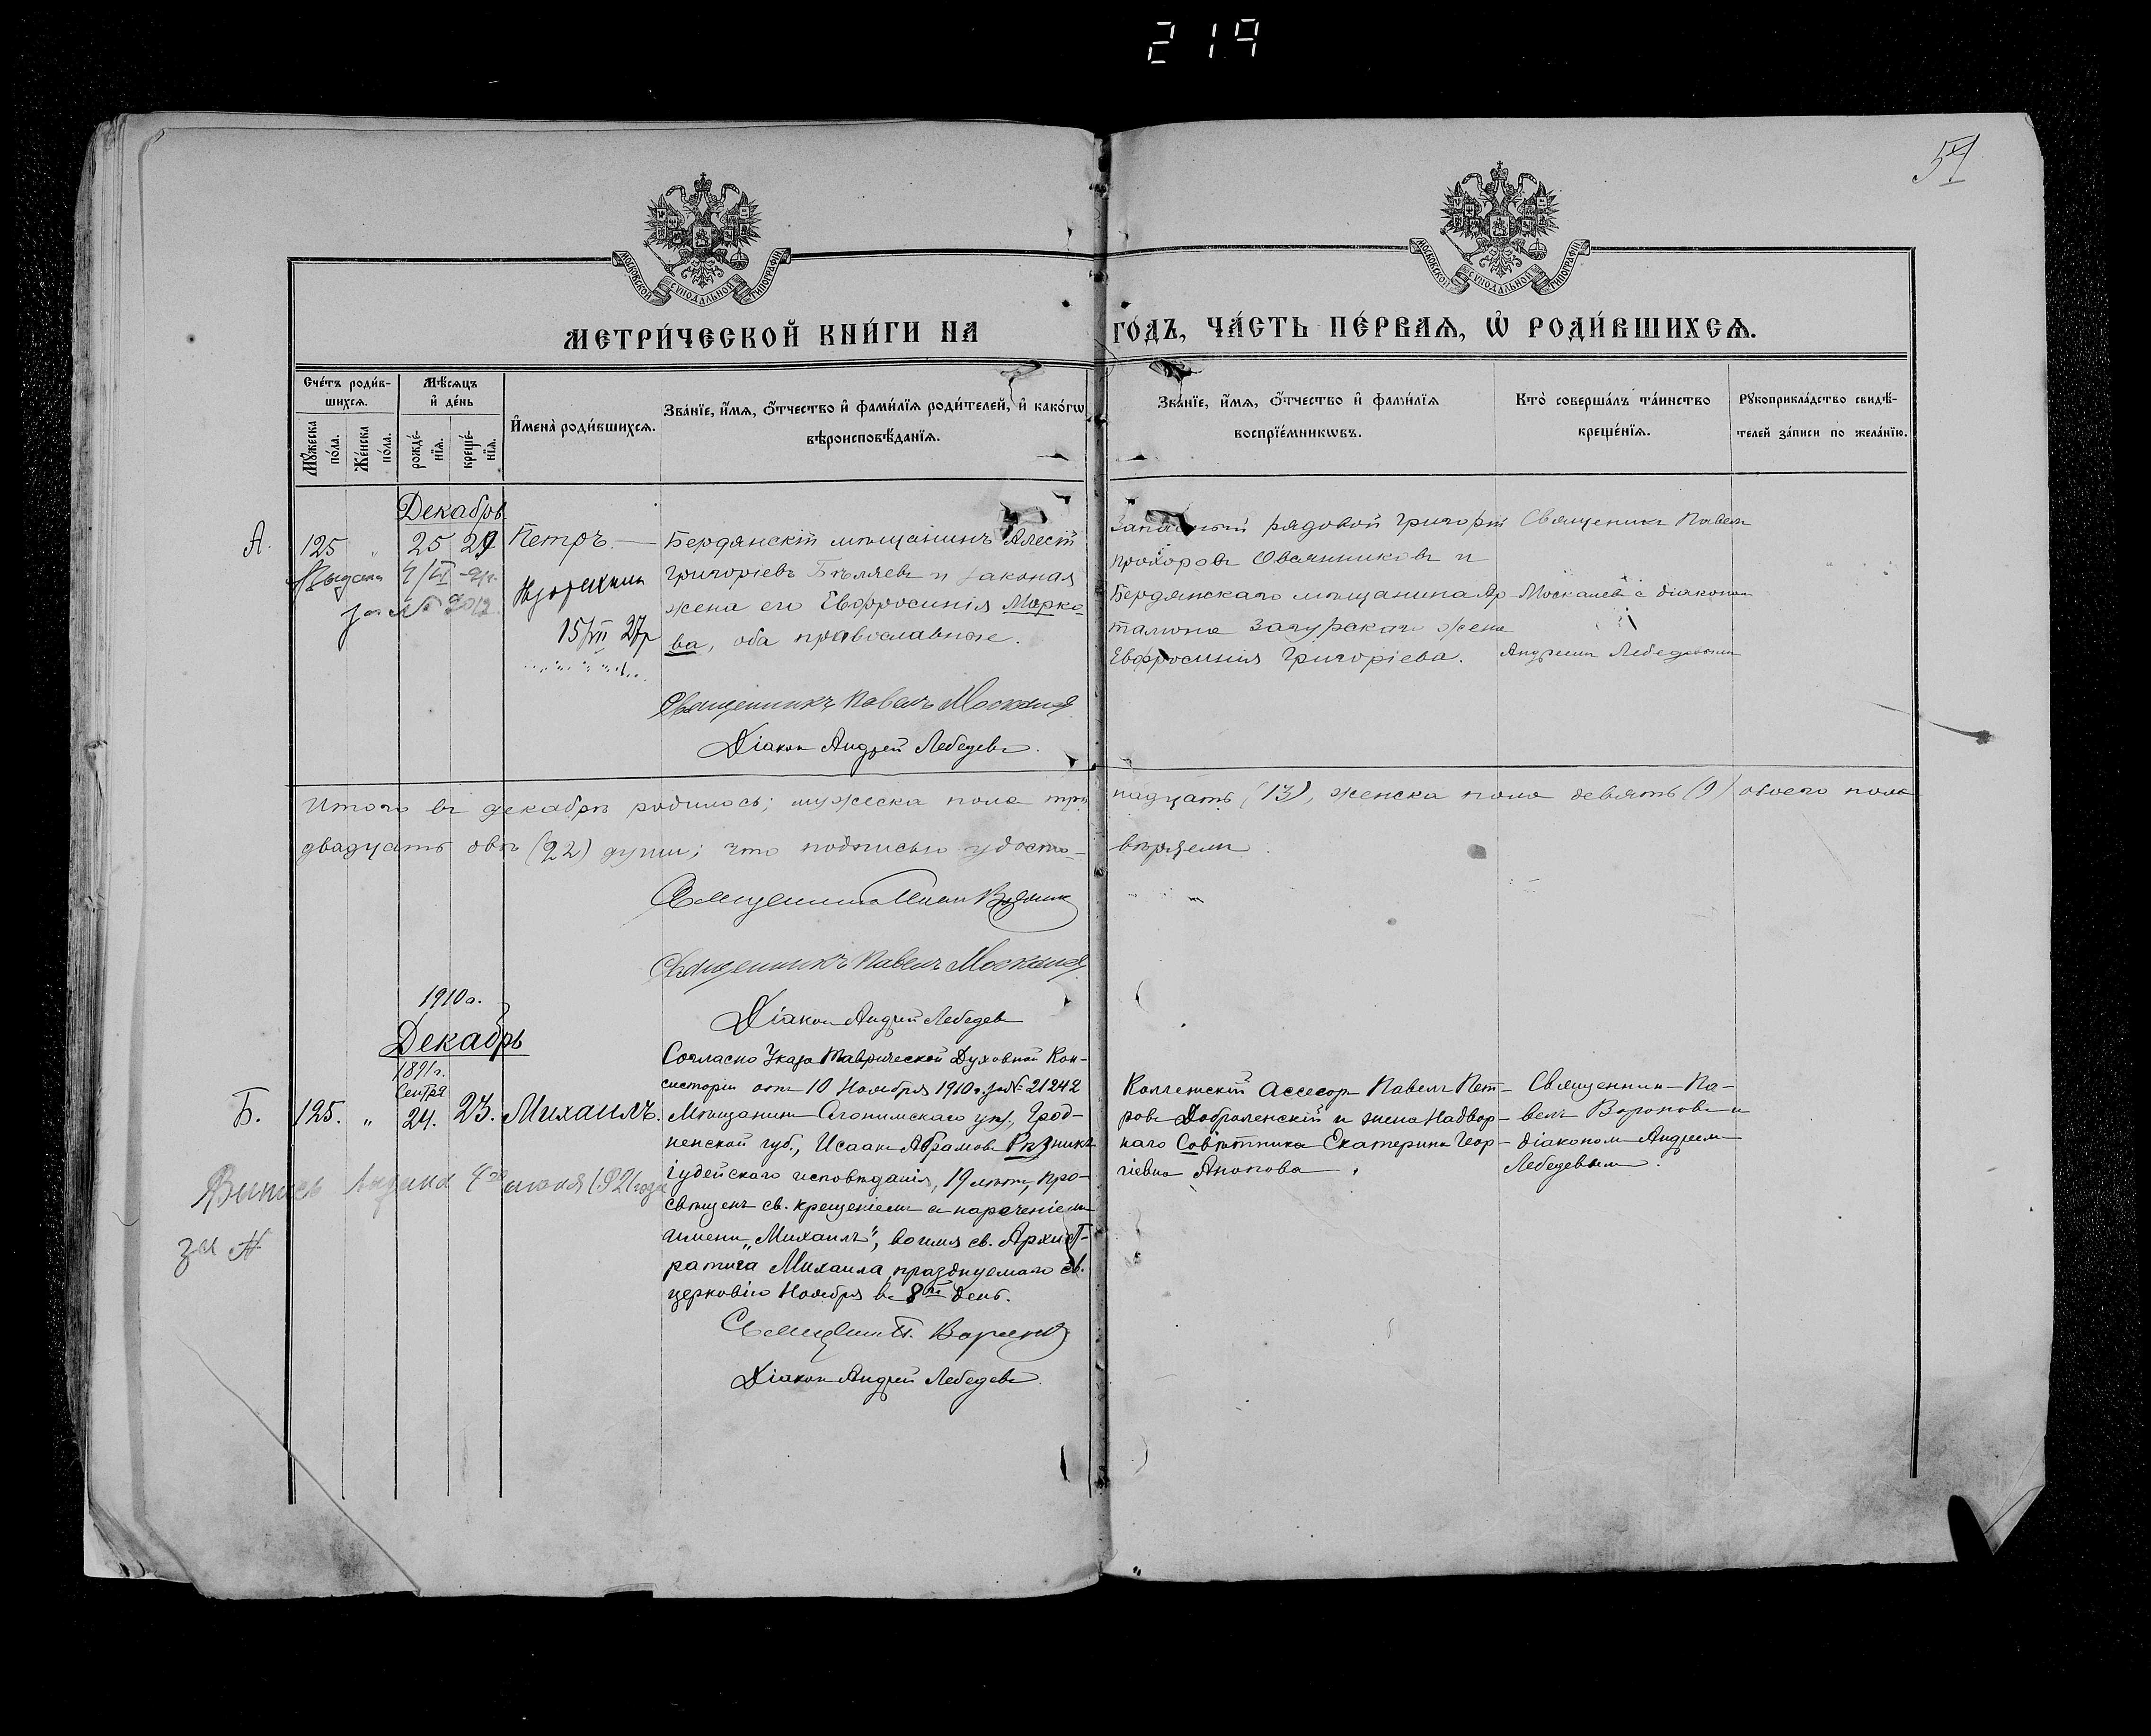 219
54
МОСКОВСКОЙ СѴНОДАЛЬНОЙ ТИПОГРАФІИ
МОСКОВСКОЙ СѴНОДАЛЬНОЙ ТИПОГРАФІИ
МЕТРИ́ЧЕСКОЙ КНИ́ГИ НА ГО́ДЪ, ЧА́СТЬ ПЕ́РВАѦ, Ѡ҆ РОДИ́ВШИХСѦ.
Сче́тъ роди́в-
шихсѧ.
Мѣ́сѧцъ
и҆ де́нь
Мꙋ́жеска
по́ла.
Же́нска
по́ла.
рожде́-
нїѧ.
креще́-
нїѧ.
И҆мена̀ роди́вшихсѧ.
Зва́нїе, и҆́мѧ, ѻ҆́тчество и҆ фами́лїѧ роди́телей, и҆ како́гѡ
вѣроисповѣ́данїѧ.
Зва́нїе, и҆́мѧ, ѻ҆́тчество и҆ фами́лїѧ
воспрїе́мникѡвъ.
Кто̀ соверша́лъ та́инство
креще́нїѧ.
Рꙋкоприкла́дство свидѣ́-
телей за́писи по жела́нїю.
Декабрь
А. 125 „ 25 29 Петръ.
Выдана
за №
15/VII 27г
Бердянскій мѣщанинъ
Григорьевъ Бѣляевъ и законая
жена его Евфросинія Марко-
ва, оба православные.
Священникъ Павелъ Москалев
Діаконъ Андрей Лебедевъ.
Запасный рядовой Григорій
Прохоровъ Овсянниковъ и
Бердянскаго мѣщанина Ар-
тамона Загурскаго жена
Евфросинія Григоріева.
Священикъ Павелъ
Москалевъ с діаконом
Андреем Лебедевымъ
Итого въ декабрѣ родилось; мужеска пола три надцать (13), женска пола девять (9) обоего пола
двадцать двѣ (22) души; что подписью удосто- вѣряем
Священникъ
Священникъ Павелъ Москалев
Діаконъ Андрей Лебедев
1910 г.
Декабрь
1891 г.
Сентбр
Б. 125. „ 24. 23. Михаилъ.
Выпись выдана 4го июня 1921 года
за №
Согласно Указа Таврической Духовной Кон-
систоріи отъ 10 Ноября 1910 г. за № 21242
Мѣщанинъ Слонимскаго уѣз., Грод-
ненской губ., Исаакъ Абрамовъ Рѣзникъ
іудейскаго исповѣданія, 19 лѣтъ, про-
свѣщенъ св. крещеніемъ съ нареченіемъ
имени „Михаилъ", во имя св. Архист-
ратига Михаила, празднуемаго св.
церковію Ноября въ 8й день.
Діаконъ Андрей Лебедевъ.
Коллежскій Асесоръ Павелъ Пет-
ровъ Доброленскій и жена Надвор-
наго Совѣтника Екатерина Геор-
гіевна Анопова.
Священникъ Па-
велъ Вороновъ и
діаконом Андреем
Лебедевым.